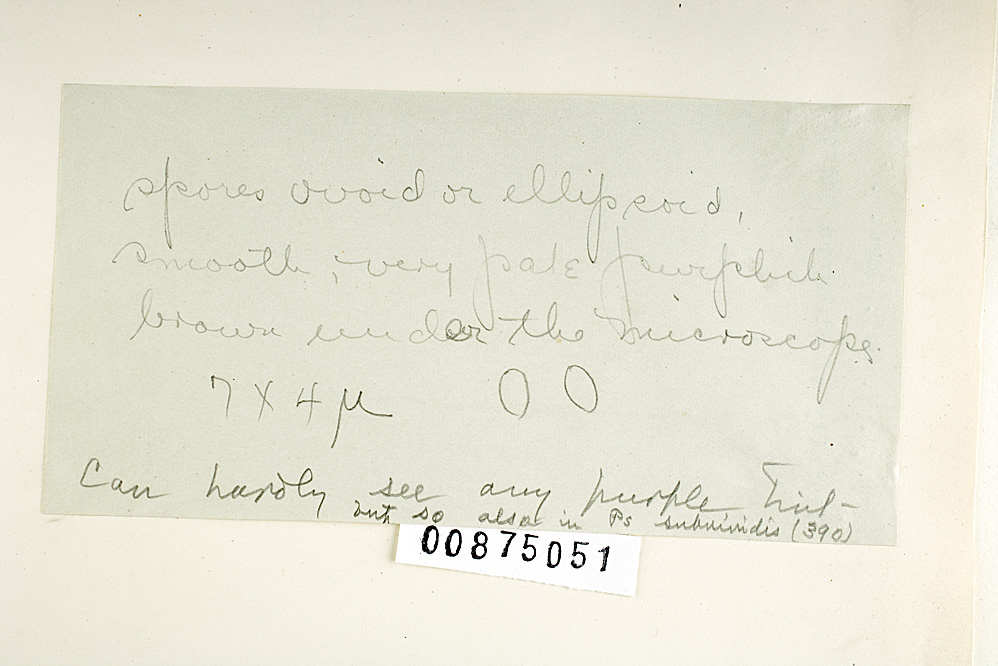 spores ovoid or ellipsoid,
smooth, very pale purplish
brown under the microscope.
7 X 4 µ
Can hardly see any purple tint-
but so also in Ps subviridis (390)
00875051